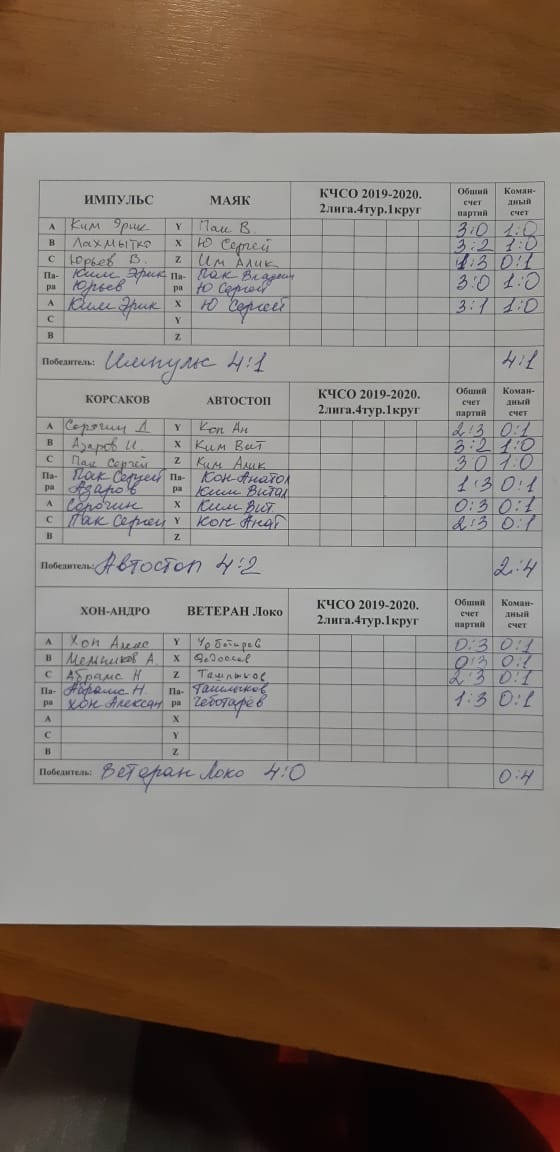 ИМПУЛЬС МАЯК КЧСО 2019-2020. 2лига.4тур.1круг Общий счет партий Коман-дный счет
A Ким Эрик Y Пак В. 3:0 1:0
B Лахмытко X Ю Сергей 3:2 1:0
C Юрьев В. Z Им Алик 1:3 0:1
Па-ра Ким Эрик Юрьев Па-ра Пак Ю Сергей 3:0 1:0
A Ким Эрик X Ю Сергей 3:1 1:0
C Y
B Z
Победитель: Импульс 4:1 4:1
КОРСАКОВ АВТОСТОП КЧСО 2019-2020. 2лига.4тур.1круг Общий счет партий Коман-дный счет
A Сорочин Д Y Кон Ан 2:3 0:1
B Азаров И. X Ким Вит 3:2 1:0
C Пак Сергей Z Ким Алик 3 0 1:0
Па-ра Пак Сергей Азаров Па-ра Кон Анатол Ким Витал 1:3 0:1
A Сорочин X Ким Вит. 0:3 0:1
C Пак Сергей Y Кон Анат 2:3 0:1
B Z
Победитель: Автостоп 4:2 2:4
ХОН-АНДРО ВЕТЕРАН Локо КЧСО 2019-2020. 2лига.4тур.1круг Общий счет партий Коман-дный счет
A Хон Алекс Y Чеботарев 0:3 0:1
B Мельников А. X 0:3 0:1
C Абрамс Н Z Ташлыков 2:3 0:1
Па-ра Абрамс Н. Хон Алексан Па-ра Ташлыков Чеботарев 1:3 0:1
A X
C Y
B Z
Победитель: Ветеран Локо 4:0 0:4